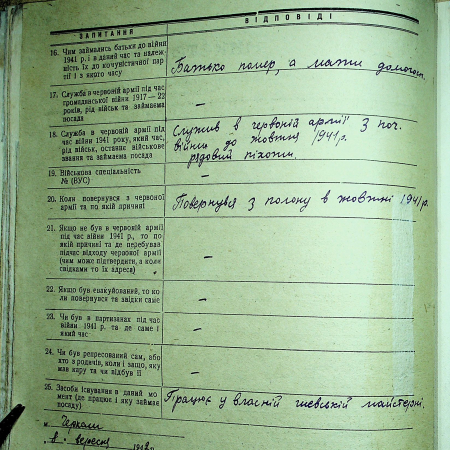 ЗАПИТАННЯ
ВІДПОВІДІ
16. Чим займались батьки до війни
1941 р. і в даний час та належ-
ність їх до комуністичної пар-
тії і з якого часу
Батько помер, а мати домогосп.
17. Служба в червоній армії під час
громадянської війни 1917—22
років, рід військ та займаема
посада
—
18. Служба в червоній армії під
час війни 1941 року, який час,
рід військ, останнє військове
звання та займаема посада
Служив в червоній армії з поч.
війни до жовтня 1941 р.
рядовий піхоти.
19. Військова спеціальність
№ (ВУС)
—
20. Коли повернувся з червоної
армії та по якій причині
Повернувся з полону в жовтні 1941 р.
21. Якщо не був в червоній армії
під час війни 1941 р., то по
якій причині та де перебував
підчас відходу червоної армії
(чим може підтвердити, а коли
свідками то їх адреса)
—
22. Якщо був евакуйований, то ко-
ли повернувся та звідки саме
—
23. Чи був в партизанах під час
війни 1941 р. та де саме і
який час
—
24. Чи був репресований сам, або
хто з родичів, коли і защо, яку
мав кару та чи відбув її
—
25. Засоби існування в даний мо-
мент (де працює і яку займає
посаду)
Працює у власній шевській майстерні.
м. Черкаси
вересня